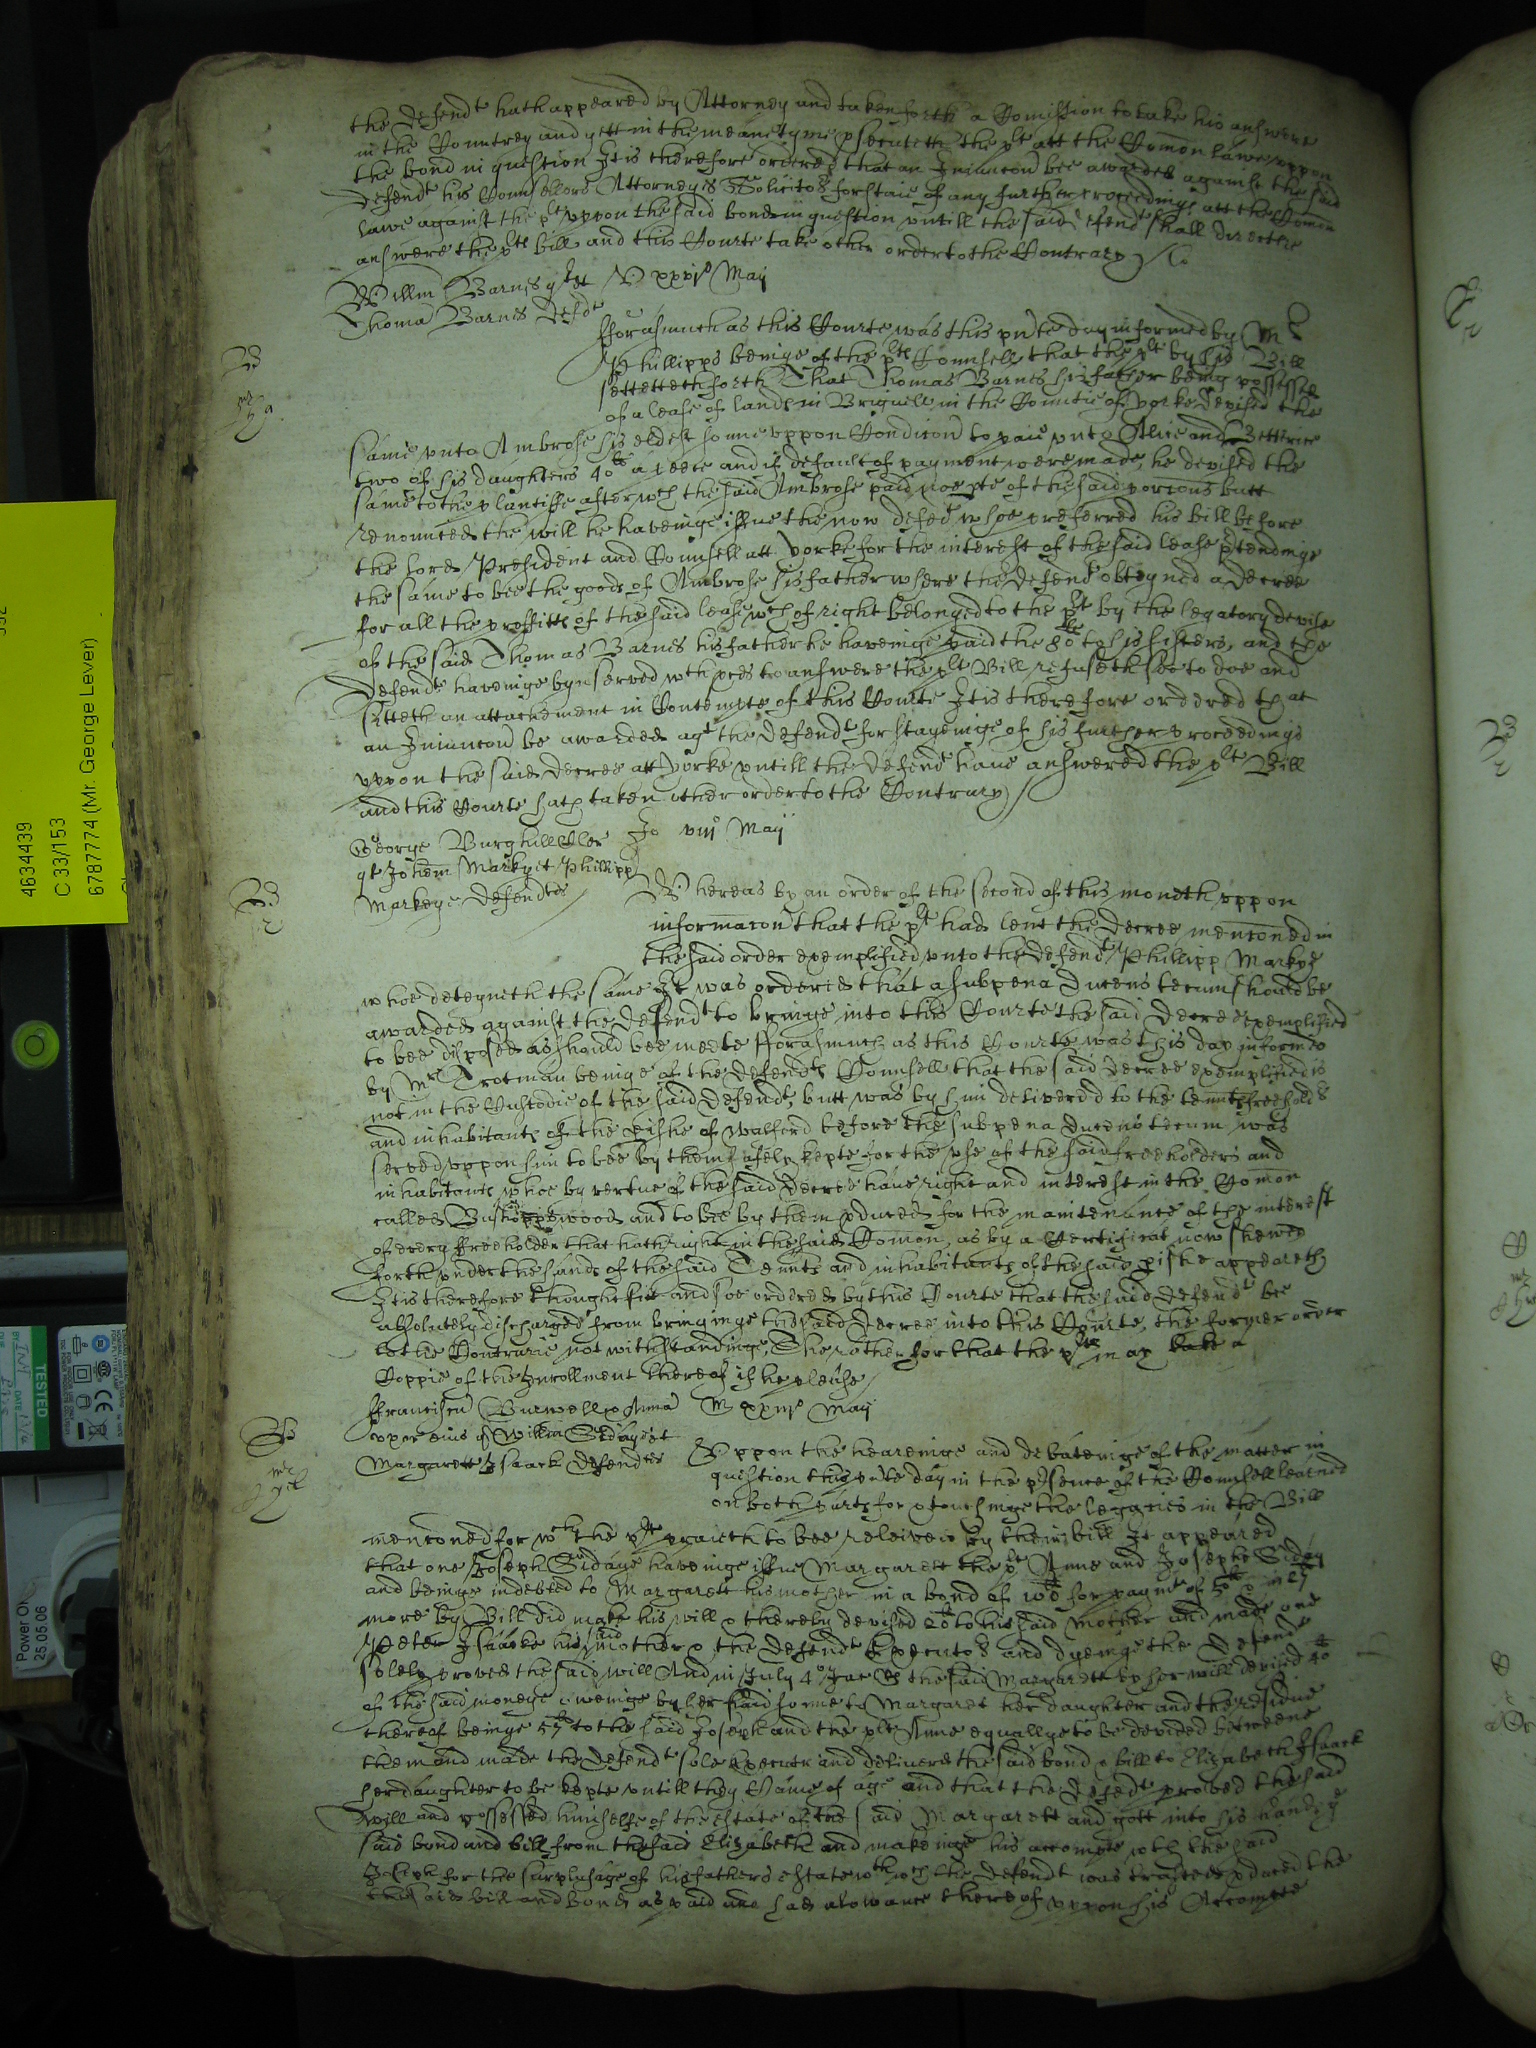 the defendt hath appeared by Attorney and taken forth a Comission to take his answere
in the Countrey and yett in the meane tyme psecuteth the plt att the Comon lawe uppon
the bond in question It is therefore ordered that an Iniuncon bee awarded against the said
defendt his Counsellors Attorneyes & Solicitors for staie of any further proceedings att the Comon
lawe against the plt uppon the said bond in question untill the said defendt shall directlie
answere the plts bill and this Courte take other order to the Contrary
Willm Barnes qt et V xxxjo Maij
Thoma Barnes Defdt
fforasmuch as this Courte was this pnte day informed by Mr
Phillipps beinge of the plts Counsell that the plt by his Bill
setteth forth That Thomas Barnes his father being possessed
of a lease of lands in in the Countie of Yorke devised the
same unto Ambrose his eldest sonne uppon Condicon to paie unto Alice and Bettrice
two of his daughters 40li a peece and if default of payment were made, he devised the
same to the plantiffe after wch the said Ambrose paid noe pte of the said porcons butt
renounced the will he haveinge issue the now defedt whoe preferred his bill before
the Lord President and Counsell att Yorke for the interest of the said lease ptendinge
the same to bee the goods of Ambrose his father where the defendt obteyned a decree
for all the proffitts of the said lease wch of right belonged to the plt by the legatory devise
of the said Thomas Barnes his father he haveinge paid the 80li to his sisters, and the
Defendt haveinge byn served wth pces to answere the plts Bill refuseth soe to doe and
sitteth an attachement in Contempte of this Courte It is therefore ordered that
an Iniuncon be awarded agt the Defendt for stayeinge of his further proceedings
uppon the said decree att Yorke untill the Defendt have answered the plts Bill
and this Courte hath taken other order to the Contrary
George Burghill Cler Jo viij Maij
qt Johem Markye et Phillipp
Markeye defendtes
Whereas by an order of the second of this moneth uppon
informacon that the plt had lent the decree mencioned in
the said order exemplified unto the defendt Phillipp Markye
whoe deteyneth the same It was ordered that a subpena ducens tecum should be
awarded against the defendt to bringe into this Courte the said decree exemplified
to bee disposed as should bee meete fforasmuch as this Courte was this day informed
by Mr Trotman beinge of the defendts Counsell that the said decree exemplified is
not in the Custodie of the said defendt, butt was by him deliverd to the tennts freeholds
and inhabitants of the pishe of Walford before the subpena ducens tecum was
served uppon him to bee by them safely kepte for the use of the said freeholders and
inhabitants whoe by vertue of the said decree have right and interest in the Comon
called wood and to bee by them pduced for the maintenance of the interest
of every ffreeholder that hath right in the said Comon, as by a Certificat now shewed
forth under the hands of the said Tennts and inhabitants of the said pishe appeareth
It is therefore thought fit and soe ordered by this Courte that the said defendt bee
absolutely discharged from bringinge the said decree into this Courte, the former order
to the Contrarie not withstandinge, The rather for that the plt may take a
Coppie of the Inrollment thereof if he please
ffranciscu Burwell & Anna M xxiijo Maij
uxor eius q Willm Sidaye et
Margarett Isaack defendtes
Uppon the heareinge and debateinge of the matter in
question this pnte day in the psence of the Counsell learned
on both parts for & touchinge the legacies in the Bill
mencioned for wch the plt prayeth to bee releived by their bill It appeared
that one Joseph Sidaye haveinge issue Margarett the plt Anne and Josephe Siday
and beinge indebted to Margarett his mother in a bond of for paymt of 50li
more by Bill did make his will & thereby devised 20li to his said mother and made one
Peter Isaacke his said mother & the defendt Executors and dyeinge the Defendt
solely proved the said will And in July 4o Jac the said Margarett by her will devised
of the said moneye oweinge by her said sonne to Margaret her daughter and the residue
thereof beinge 57li to the said Joseph and the plt Anne equallye to be devided betweene
them and made the defendt sole Executr and delivered the said bond & bill to Elizabeth Isaack
her daughter to be kepte untill they Came of age and that the Defedt proved the said
will and possessed himselfe of the estate of the said Margarett and gott into his hands the
said bond and bill from the said Elizabeth and makeinge his accompte with the said
Joseph for the surplusage of his fathers estate wth wch the defendt was trusted pduced the
the said bill and bond as paid and had alowance thereof uppon his Accompte
4634439
C 33/153
6787774 (Mr. George Lever)
TESTED
Power ON
25.05.06